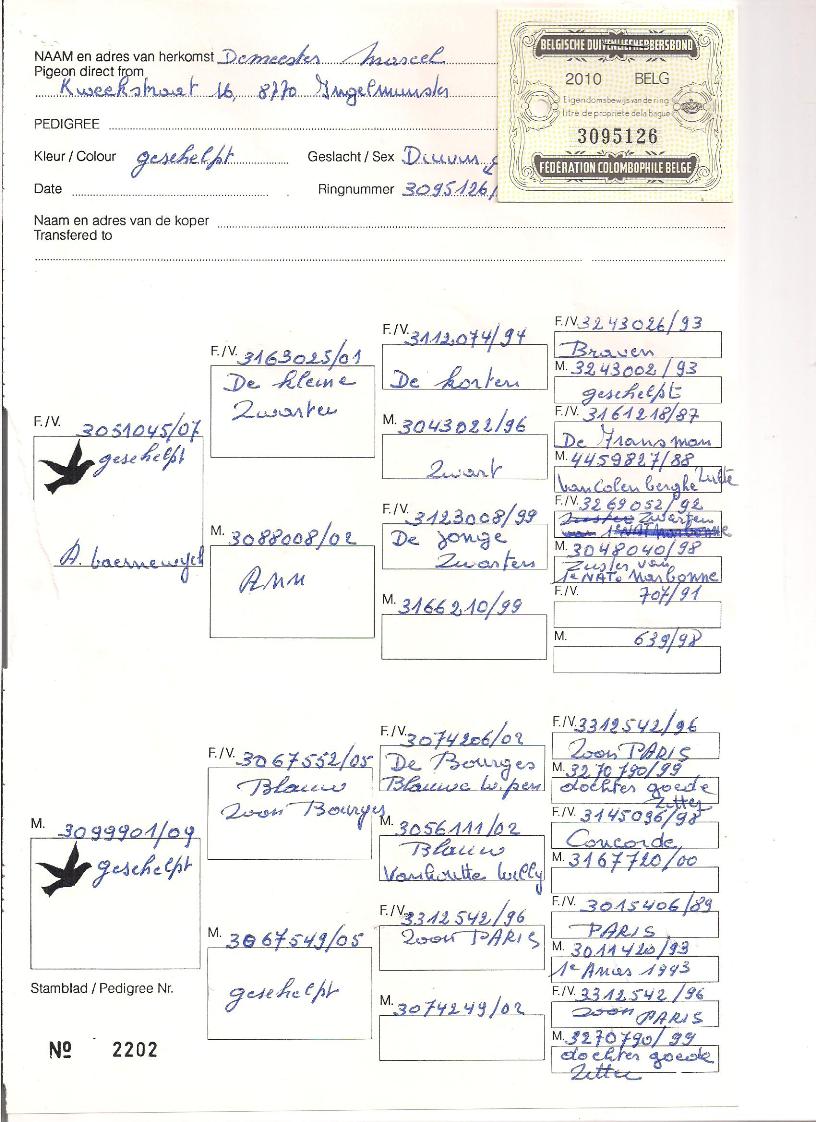 NAAM en adres van herkomst Demeester Marcel
Pigeon direct from
Kweekstraat 16, 8770 Ingelmunster
PEDIGREE
Kleur / Colour geschelpt Geslacht / Sex Duivin
Date Ringnummer 3095126/
Naam en adres van de koper
Transfered to
BELGISCHE DUIVENLIEFHEBBERSBOND
2010 BELG
Eigendomsbewijs van de ring
titre de propriete de la bague
3095126
FEDERATION COLOMBOPHILE BELGE
F./V. 3051045/07
geschelpt
F./V. 3163025/01
De kleine
Zwarten
M. 3088008/02
Ann
F./V. 3112074/94
De korten
M. 3043022/96
Zwart
F./V. 3123008/99
De Jonge
Zwarten
M. 3166210/99
F./V. 3243026/93
Braven
M. 3243002/93
geschelpt
F./V. 3161218/87
De Fransman
M. 4459827/88
Van Colen berghe
F./V. 3269052/92
Zwarten
1e NAT Narbonne
M. 3048040/98
Zuster van
1e NAT. Narbonne
F./V. 707/91
M. 639/98
M. 3099901/09
geschelpt
F./V. 3067552/05
Blauw
Zoon Bourges
M. 3067549/05
geschelpt
F./V. 3074206/02
De Bourges
Blauwe W.pen
M. 3056111/02
Blauw
Vanhoutte Willy
F./V. 3312542/96
Zoon PARIS
M. 3074249/02
F./V. 3312542/96
Zoon PARIS
M. 3270790/99
dochter goede
Zitter
F./V. 3145096/98
Concorde
M. 3167720/00
F./V. 3015406/89
PARIS
M. 3011420/93
1e Arras 1993
F./V. 3312542/96
Zoon PARIS
M. 3270790/99
dochter goede
Zitter
Stamblad / Pedigree Nr.
Nº 2202